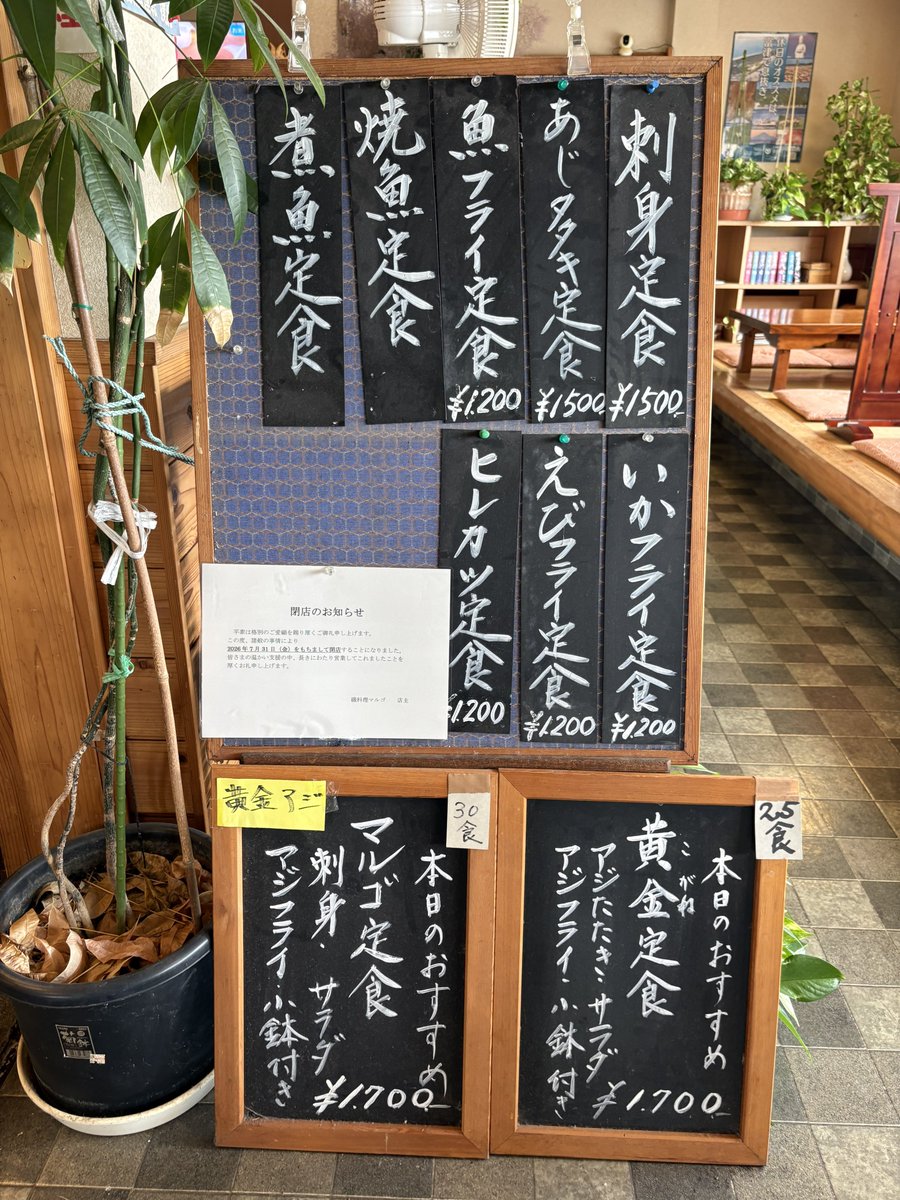 刺身定食
¥1500
あじタタキ定食
¥1500
魚フライ定食
¥1.200
焼魚定食
煮魚定食
いかフライ定食
¥1.200
えびフライ定食
¥1.200
ヒレカツ定食
¥1.200
閉店のお知らせ
平素は格別のご愛顧を賜り厚くご御礼申し上げます。
この度、諸般の事情により
2026年7月31日（金）をもちまして閉店することになりました。
皆さまの温かい支援の中、長きにわたり営業してこれましたことを
厚くお礼申し上げます。
磯料理マルゴ　店主
黄金アジ
30食
本日のおすすめ
マルゴ定食
刺身・サラダ
アジフライ・小鉢付き
¥1.700
25食
本日のおすすめ
黄金定食
こがね
アジたたき・サラダ
アジフライ・小鉢付き
¥1.700